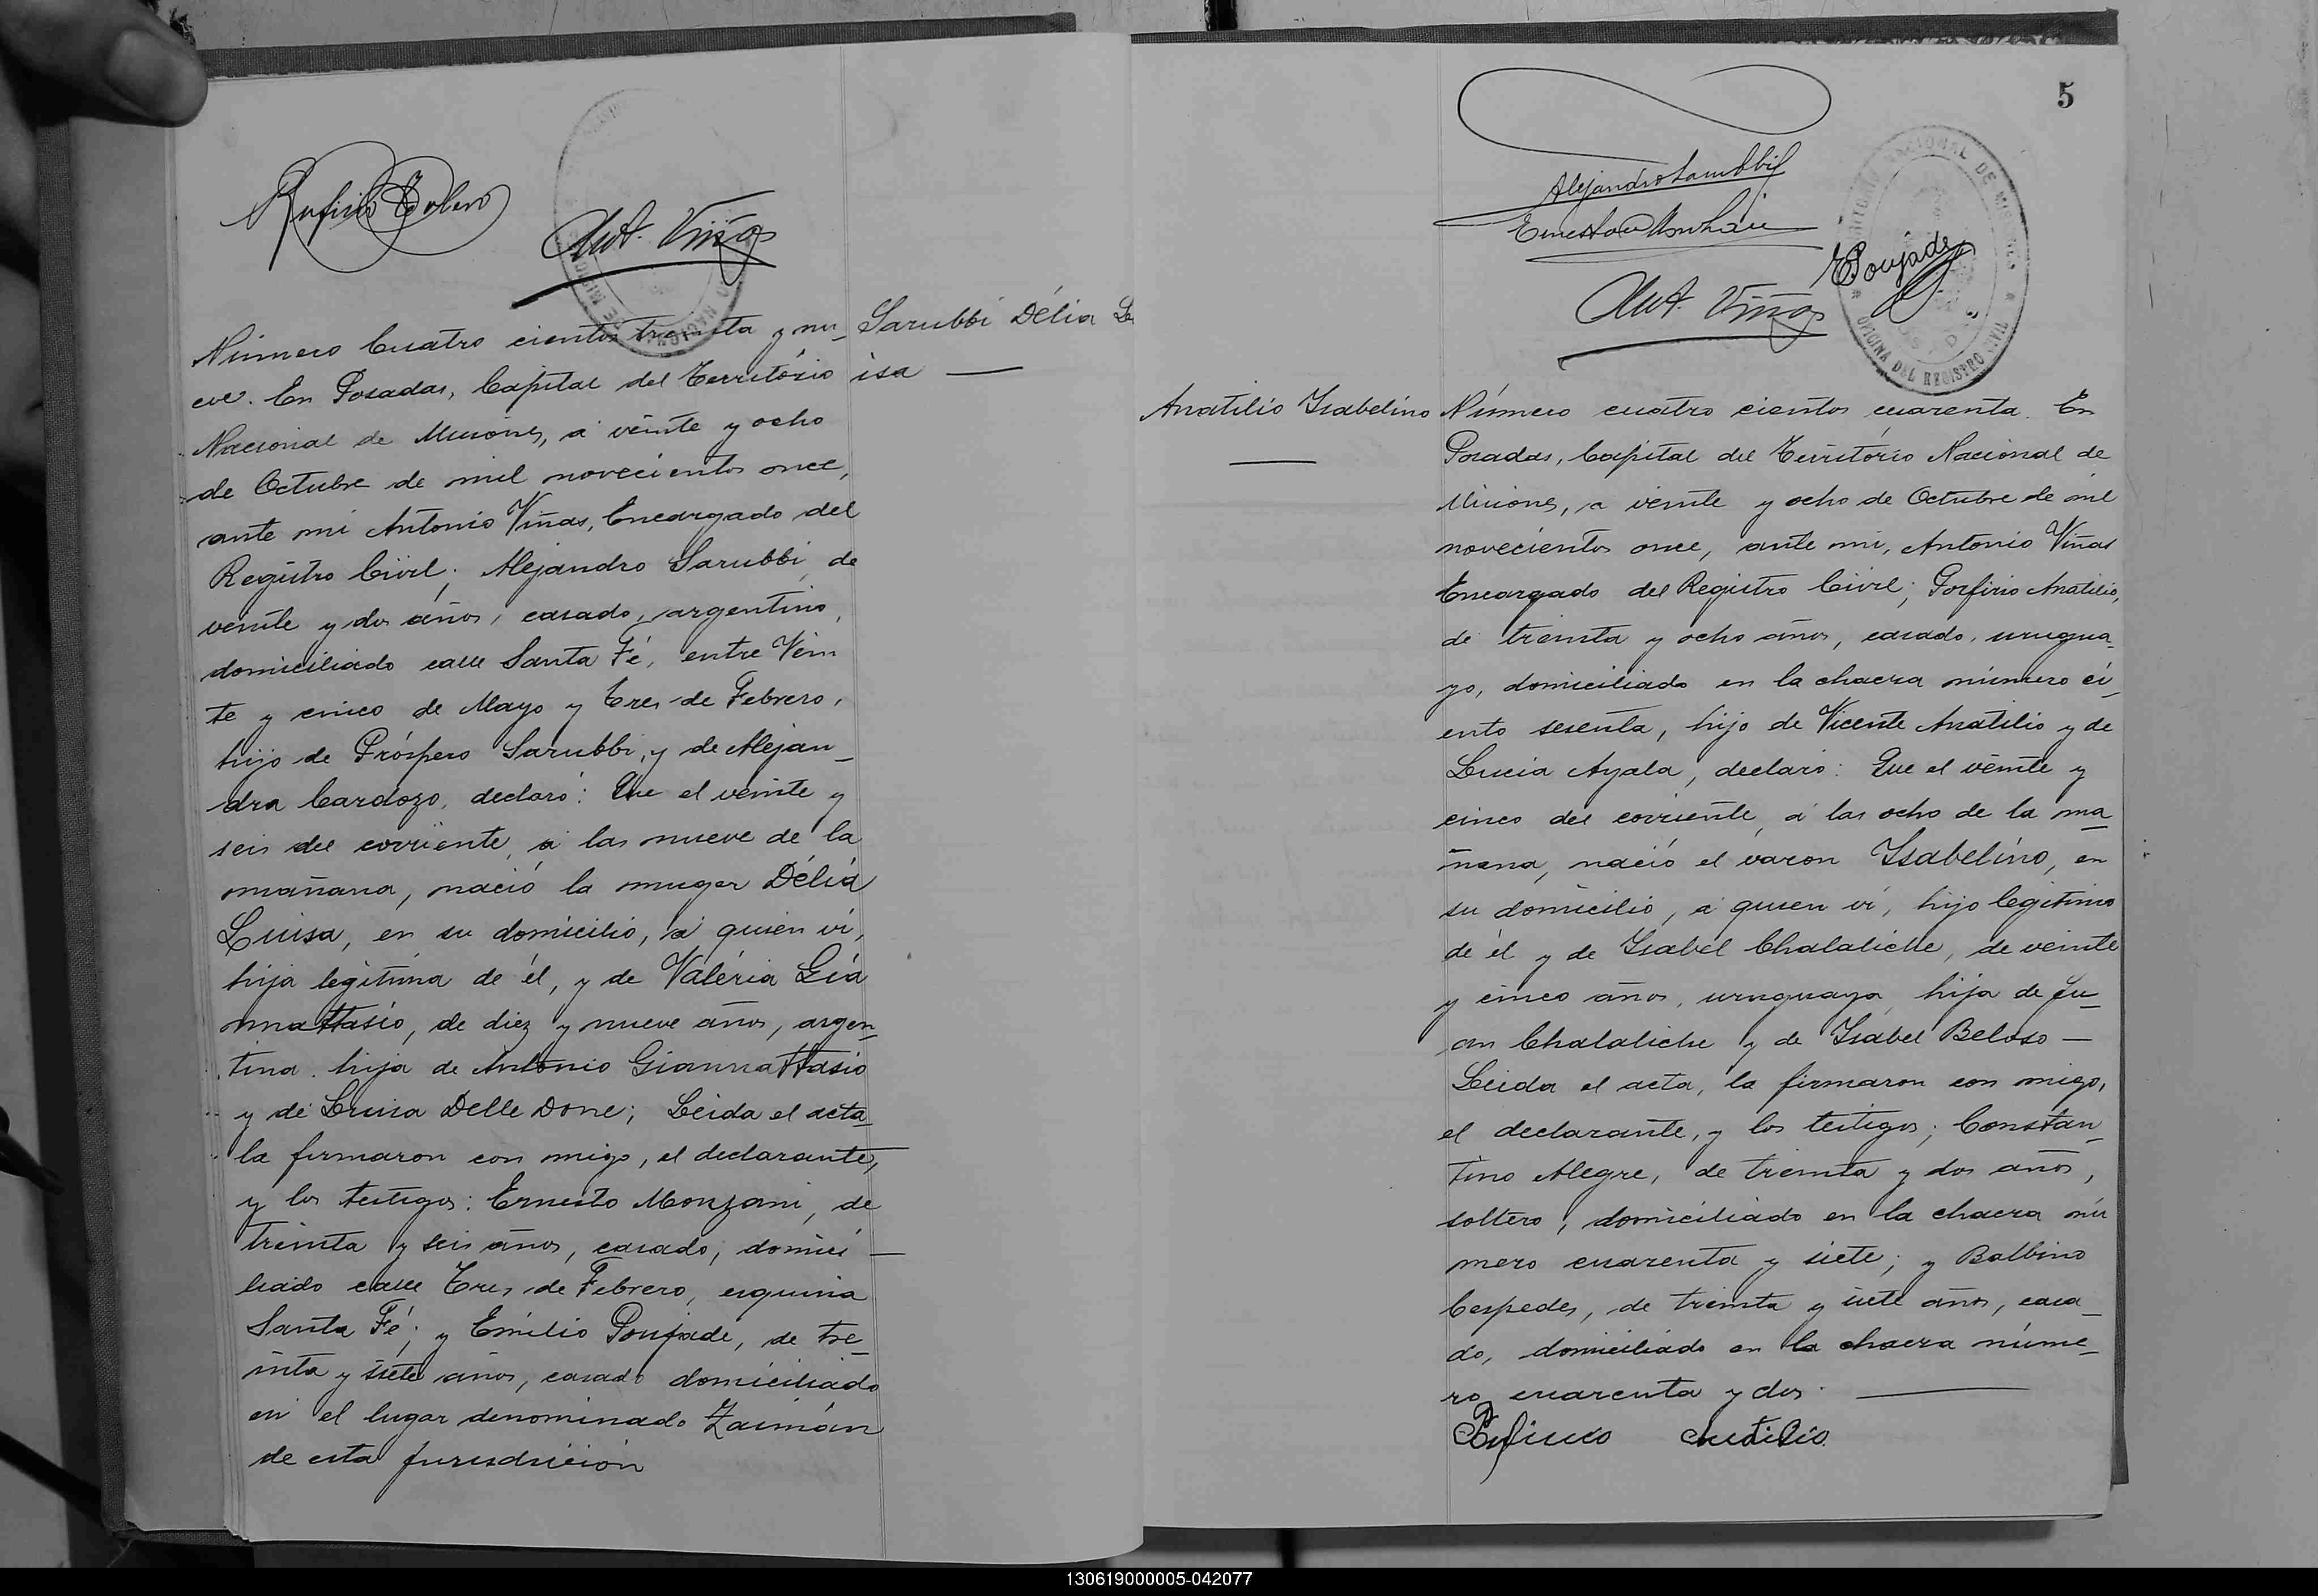 Rufino
Ant. Viñas
Número Cuatro cientos treinta y nu_
eve. En Posadas, Capital del Território
Nacional de Misiones, á veinte y ocho
de Octubre de mil novecientos once,
ante mi Antonio Viñas, Encargado del
Registro Civil; Alejandro Sarubbi, de
veinte y dos años, casado, argentino,
domiciliado calle Santa Fé, entre Vein
te y cinco de Mayo y Tres de Febrero,
hijo de Próspero Sarubbi, y de Alejan_
dra Cardozo, declaró: Que el veinte y
seis del corriente, á las nueve de la
mañana, nació la muger Délia
Luisa, en su domicilio, á quien ví,
hija legítima de él, y de Valéria Gia
nnattasio, de diez y nueve años, argen_
tina. hija de Antonio Giannattasio
y de Luisa Delle Done; Leida el acta
la firmaron con migo, el declarante,
y los testigos: Ernesto Monzani, de
treinta y seis años, casado, domici_
liado calle Tres de Febrero, esquina
Santa Fé; y Emilio Poujade, de tre_
inta y siete años, casado domiciliado
en el lugar denominado Zaimán
de esta jurisdricción
Sarubbi Délia Lu
isa —
5
Alejandro Sarubbi
Ernesto Monzani
EPoujade
Ant. Viñas
OFICINA DEL REGISTRO CIVIL
Anatilio Ysabelino
—
Número cuatro cientos cuarenta. En
Posadas, Capital del Território Nacional de
Misiones, a veinte y ocho de Octubre de mil
novecientos once, ante mi, Antonio Viñas
Encargado del Registro Civil; Porfirio Anatilio,
de treinta y ocho años, casado, urugua_
yo, domiciliado en la chacra número ci_
ento sesenta, hijo de Vicente Anatilio y de
Lucia Ayala, declaró: Que el veinte y
cinco del corriente, á las ocho de la ma_
ñana, nació el varon Ysabelino, en
su domicilio, á quien ví, hijo legítimo
de él y de Ysabel Chalaliche, de veinte
y cinco años, uruguaya, hija de Ju_
an Chalaliche y de Ysabel Beloso —
Leida el acta, la firmaron con migo,
el declarante, y los testigos; Constan_
tino Alegre, de treinta y dos años,
soltero, domiciliado en la chacra nú
mero cuarenta y siete; y Balbino
Cespedes, de treinta y siete años, casa_
do, domiciliado en la chacra núme_
ro cuarenta y dos. —
130619000005-042077